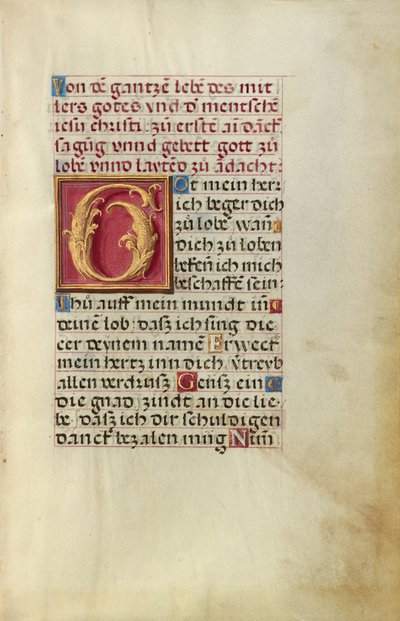 Von dē gantzē lebē des mit
lers gotes vnd d᷑ mentschē
iesu christi: zů erstē ain danck
sagūg vnnd gebett gott zů
lobē vnnd laytēd zů ādacht:
Got mein herr
ich beger dich
zů lobē wañ
dich zů loben
bekeñ ich mich
beschaffē sein:
Thů auff mein mundt in
deinē lob dasz ich sing die
eer deynem namē Erweck
mein hertz inn dich v̄treyb
allen verdrusz Geusz ein
die gnad zindt an die lie-
be dasz ich dir schuldigen
danck bezalen müg Nim